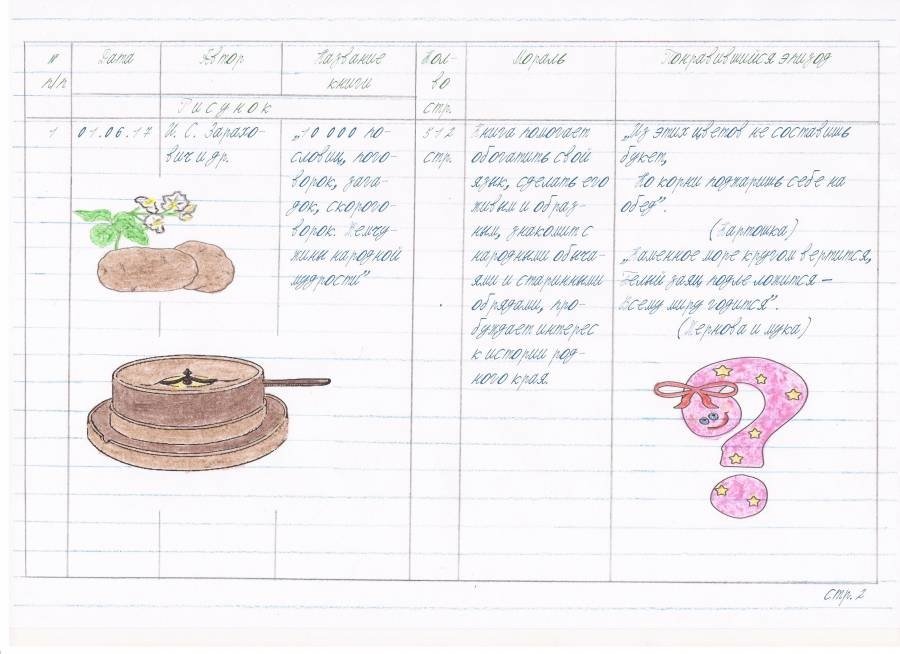 № п/п
Дата
Автор
Название
книги
Кол-
во
стр.
Мораль
Понравившийся эпизод
Рисунок
1
01.06.17
И. С. Зарахо-
вич и др.
„10 000 по-
словиц, пого-
ворок, зага-
док, скорого-
ворок. Жемчу-
жины народной
мудрости”
512
стр.
Книга помогает
обогатить свой
язык, сделать его
живым и образ-
ным, знакомит с
народными обыча-
ями и старинными
обрядами, про-
буждает интерес
к истории род-
ного края.
„Из этих цветов не составишь
букет,
Но корни поджаришь себе на
обед”.
(Картошка)
„Каменное море кругом вертится,
Белый заяц подле ложится –
Всему миру годится”.
(Жернова и мука)
стр. 2